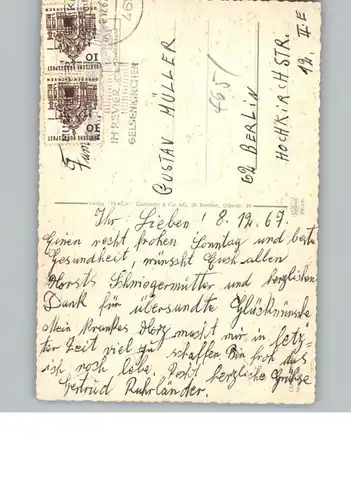 Familie
GUSTAV MÜLLER
465/
62 BERLIN
HOCHKIRCHSTR.
12. II E
GELSENKIRCHEN
DEUTSCHE BUNDESPOST
10
DEUTSCHE BUNDESPOST
10
Ihr Lieben! 8.12.67.
Einen recht frohen Sonntag und beste
Gesundheit, wünscht Euch allen
Horsts Schwiegermutter und herzlichen
Dank für übersandte Glückwünsche
Mein krankes Herz macht mir in letz-
ter Zeit viel zu schaffen. Bin froh das
ich noch lebe. Recht herzliche Grüße
Gertrud Ruhrländer.